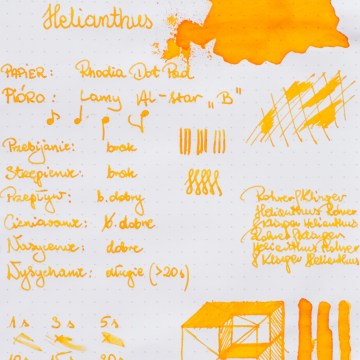 Helianthus
PAPIER: Rhodia Dot Pad
PIÓRO: Lamy Al-star „B"
Przebijanie: brak
Strzępienie: brak
Przepływ: b. dobry
Cieniowanie: b. dobre
Nasycenie: dobre
Wysychanie: długie (>20s)
Rohrer & Klinger
Helianthus Rohrer
& Klinger Helianthus
Rohrer & Klinger
Helianthus Rohrer
& Klinger Helianthus
1s 3s 5s
10s 15s 20s